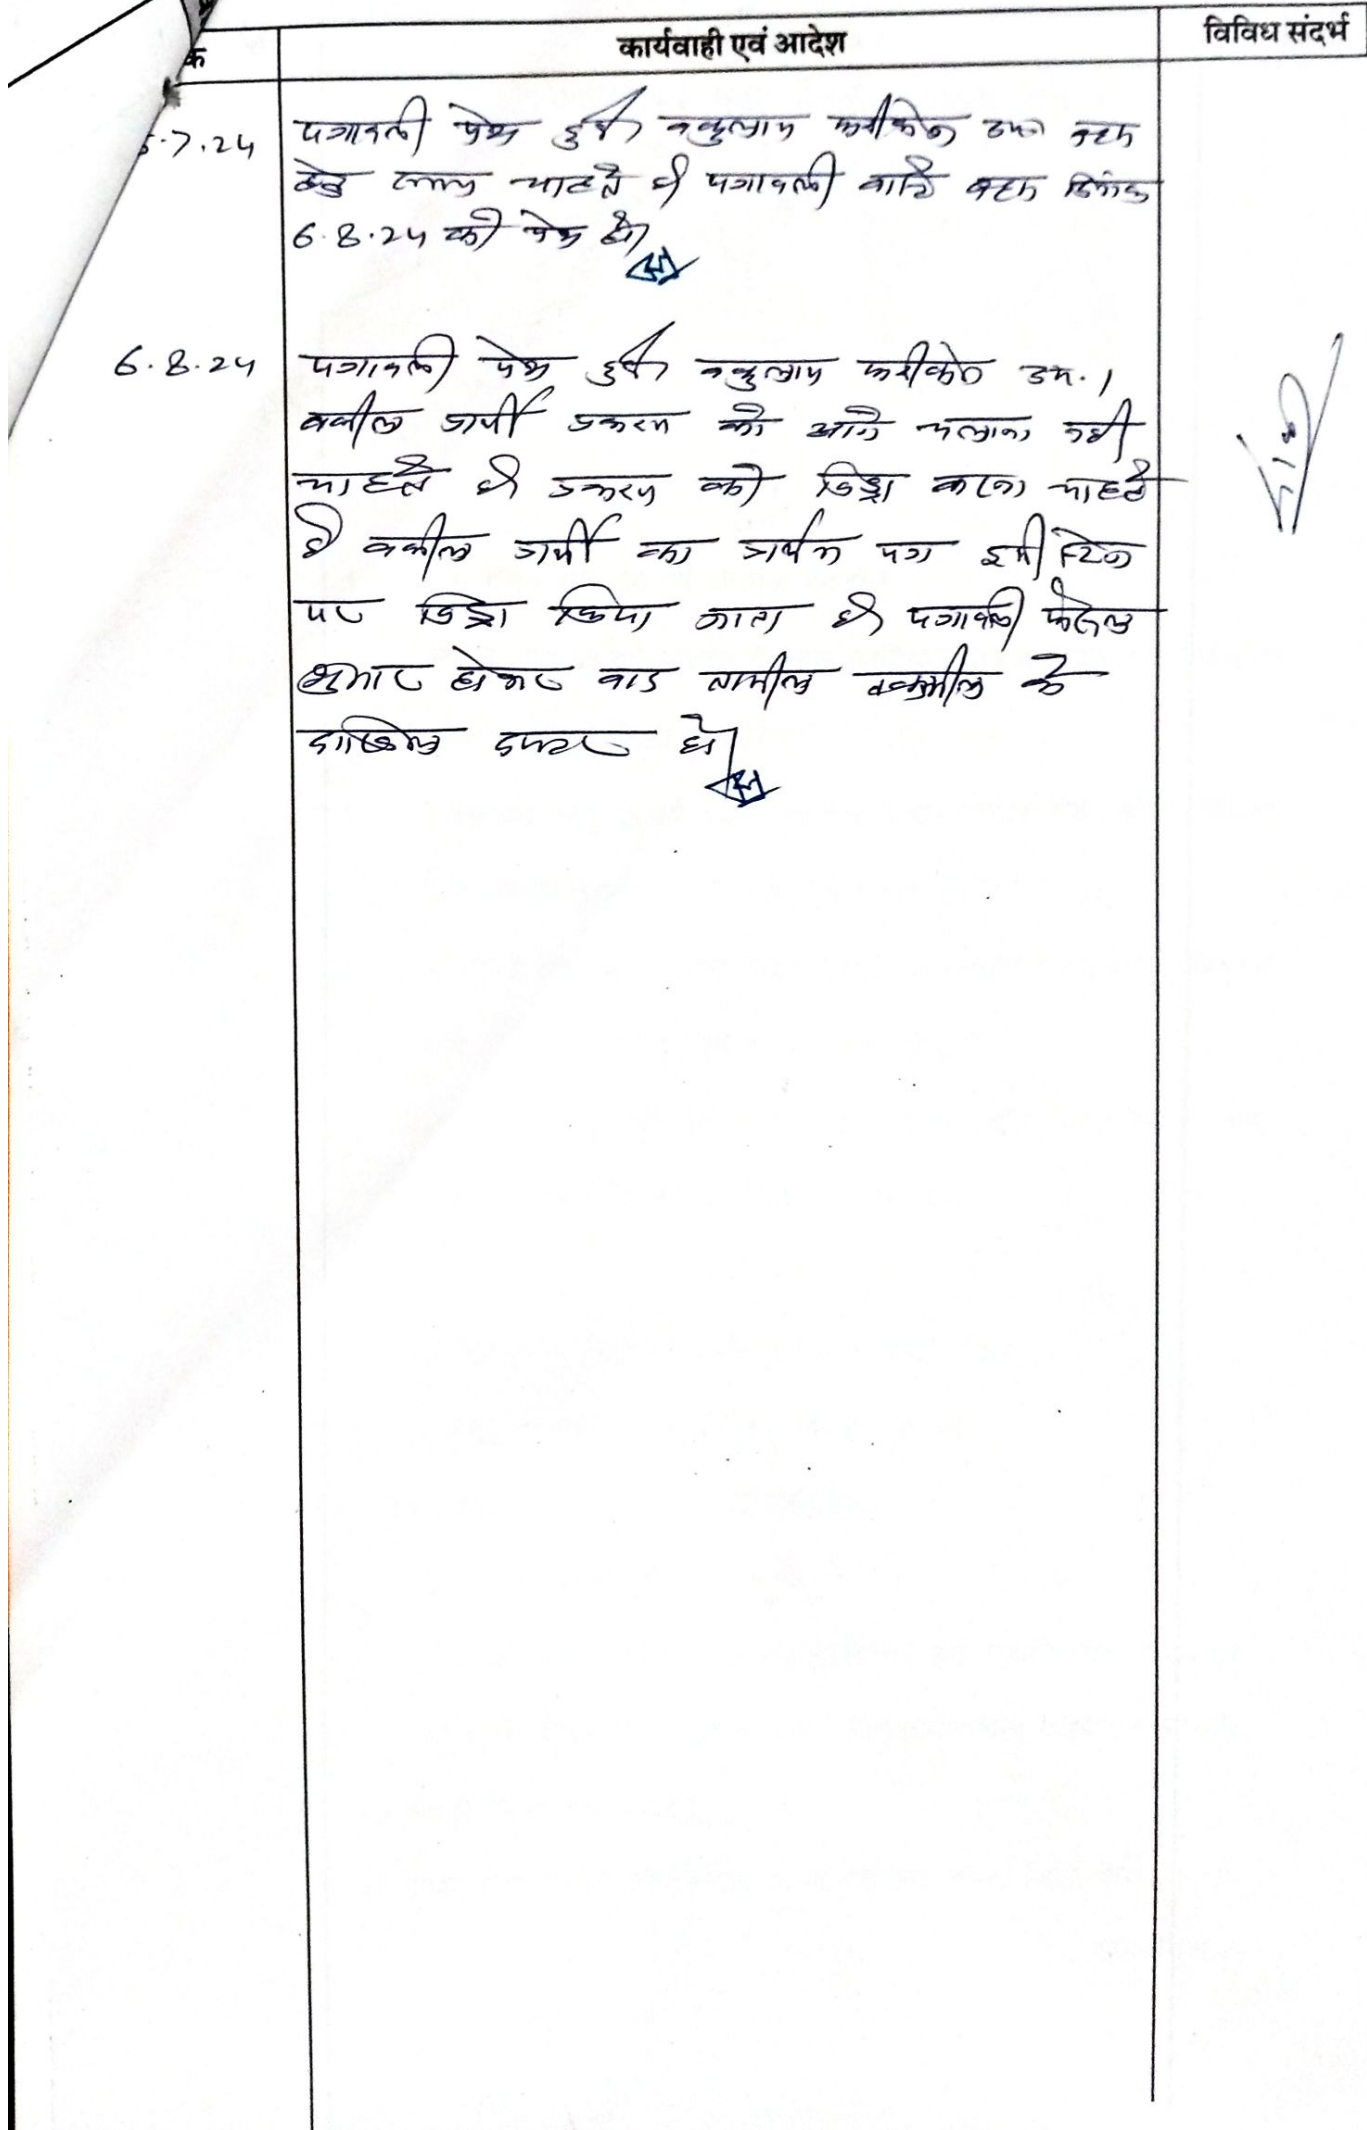 क कार्यवाही एवं आदेश विविध संदर्भ
5.7.24 पत्रावली पेश हुई। वकुलाय फरीकेन उप. बहस
हेतु समय चाहते है। पत्रावली वास्ते बहस दिनांक
6.8.24 को पेश हो।
6.8.24 पत्रावली पेश हुई। वकुलाय फरीकेन उप.।
वकील प्रार्थी प्रकरण को आगे चलाना नही
चाहते है। प्रकरण को विड्रा करना चाहते
है वकील प्रार्थी का प्रार्थना पत्र इसी स्टेज
पर विड्रा किया जाता है। पत्रावली फैसल
शुमार होकर बाद तामील तकमील के
दाखिल दफ्तर हो।